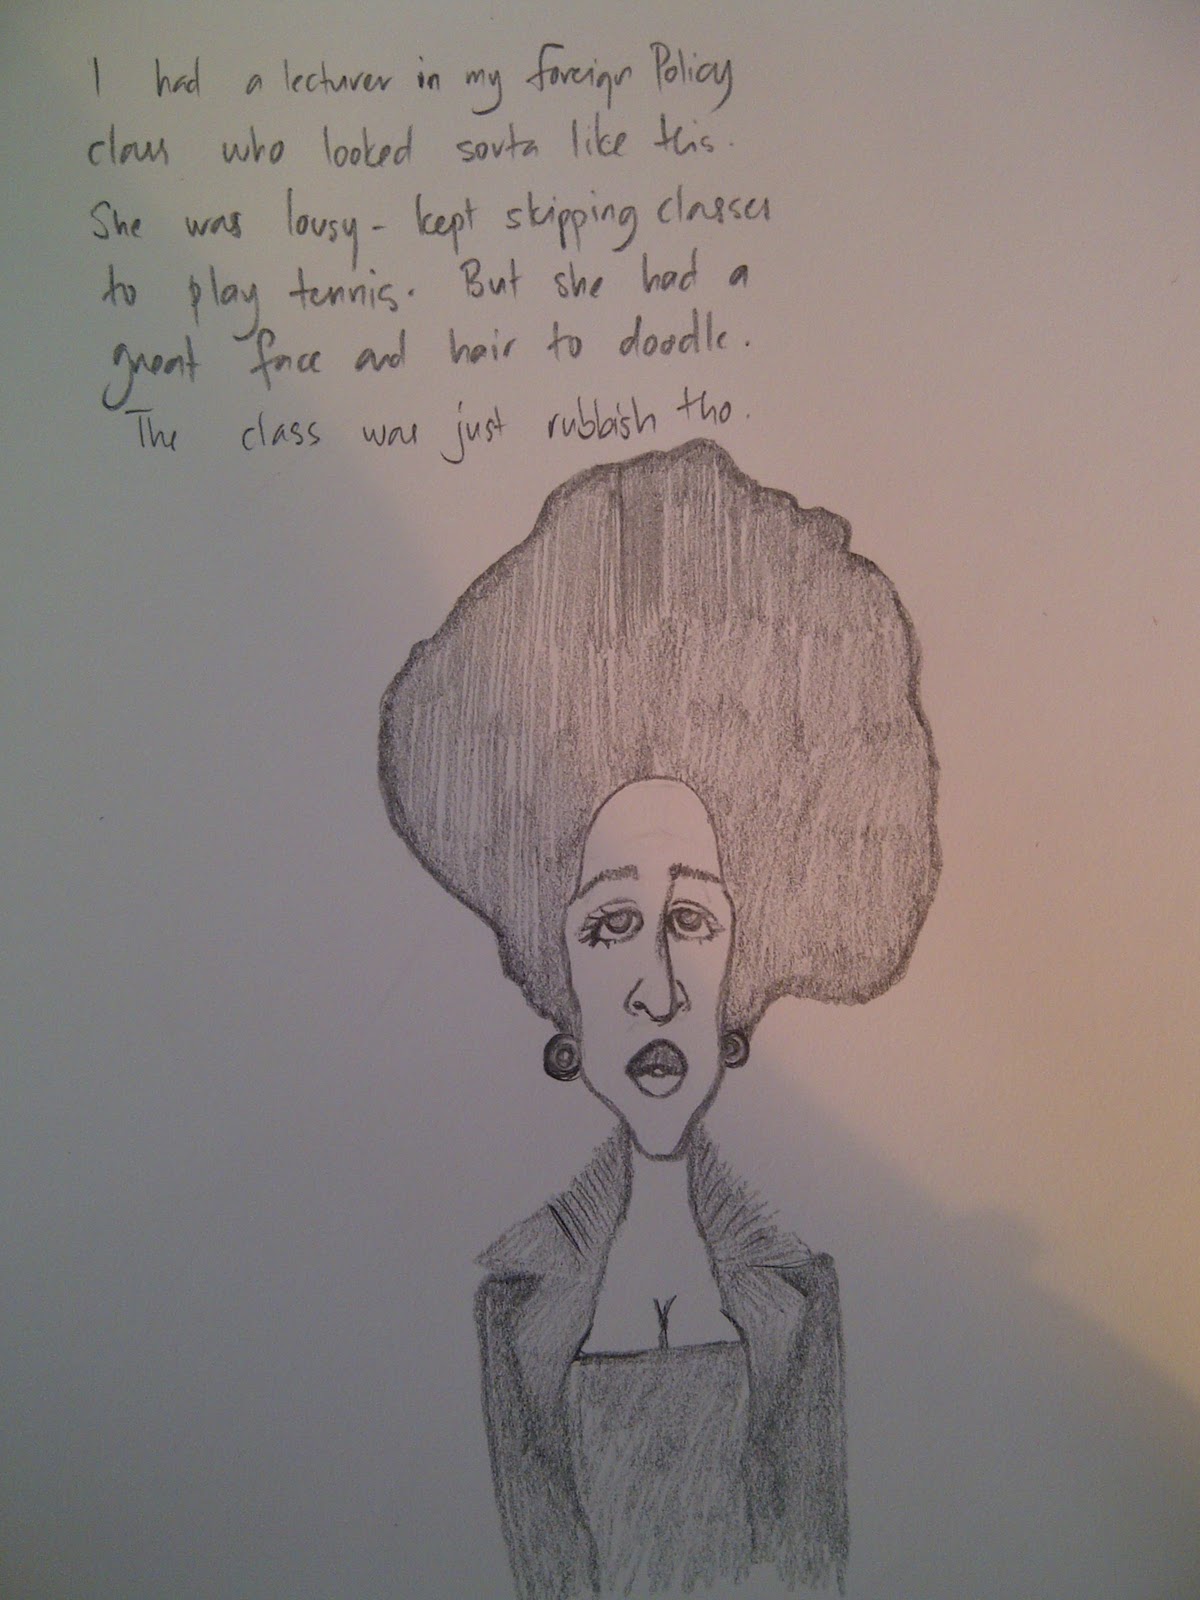 I had a lecturer in my Foreign Policy
class who looked sorta like this.
She was lousy - kept skipping classes
to play tennis. But she had a
great face and hair to doodle.
The class was just rubbish tho.